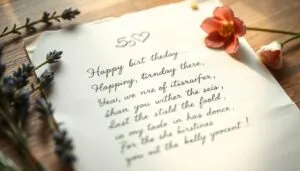 50
Happy birt theday...
Happing, tirnday there,
Year, we nre of itisrafer,
than you wither the seis,
Last the stuld the foold,
is my taste in has donce,
For the she birstines
you out the kelly yorcent!